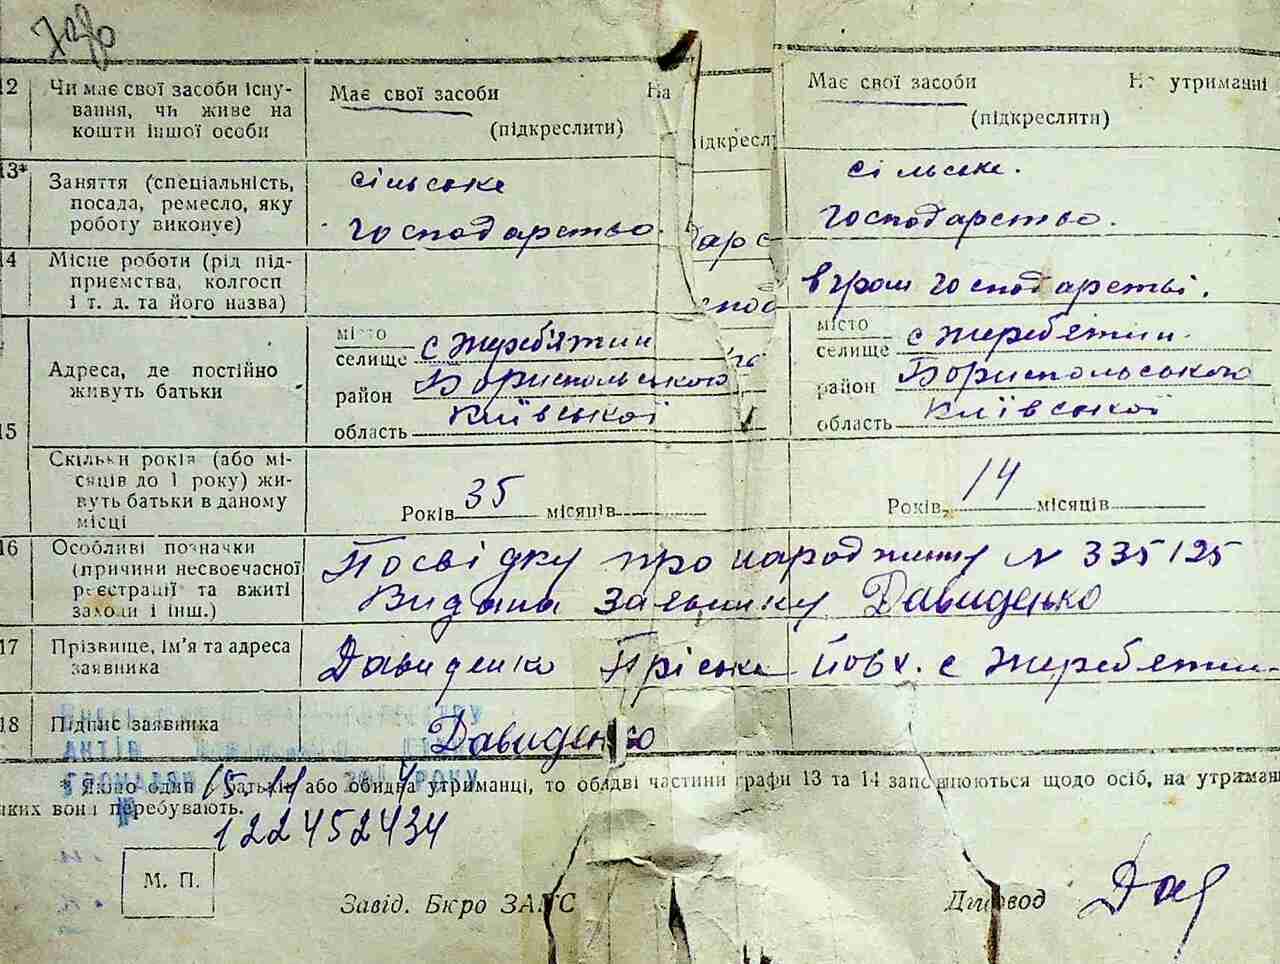 12 Чи має свої засоби існу-
вання, чи живе на
кошти іншої особи
Має свої засоби На
(підкреслити)
ідкресл
Має свої засоби На утриманні
(підкреслити)
13* Заняття (спеціальність,
посада, ремесло, яку
роботу виконує)
сільське
господарство.
дарс
сільське.
господарство.
14 Місце роботи (рід під-
приємства, колгосп
і т. д. та його назва)
спод
в гром господарстві.
15 Адреса, де постійно
живуть батьки
місто
селище с Жереб'ятин
район Бориспольського
область Київської
місто
селище с Жереб'ятин.
район Бориспольського
область Київської
Скільки років (або мі-
сяців до 1 року) жи-
вуть батьки в даному
місці
Років 35 місяців
Років 14 місяців
16 Особливі позначки
(причини несвоєчасної
реєстрації та вжиті
заходи і інш.)
Посвідку про народження N 335125
Видана заявнику Давиденко
17 Прізвище, ім'я та адреса
заявника
Давиденко Пріська Йовх. с Жереб'ятин
18 Підпис заявника
Давиденко
* Якщо один з батьків або обидва на утриманні, то обидві частини графи 13 та 14 заповнюються щодо осіб, на утриманні
яких вони перебувають.
РОКУ
122452434
М. П.
Завід. Бюро ЗАГС
Діловод